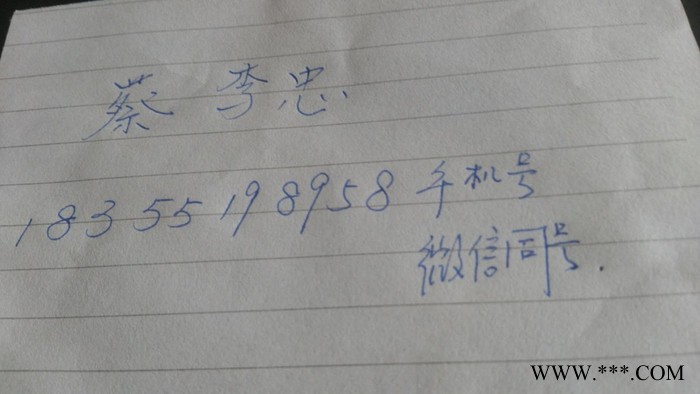 蔡李忠
18355198958手机号
微信同号.
WWW.***.COM